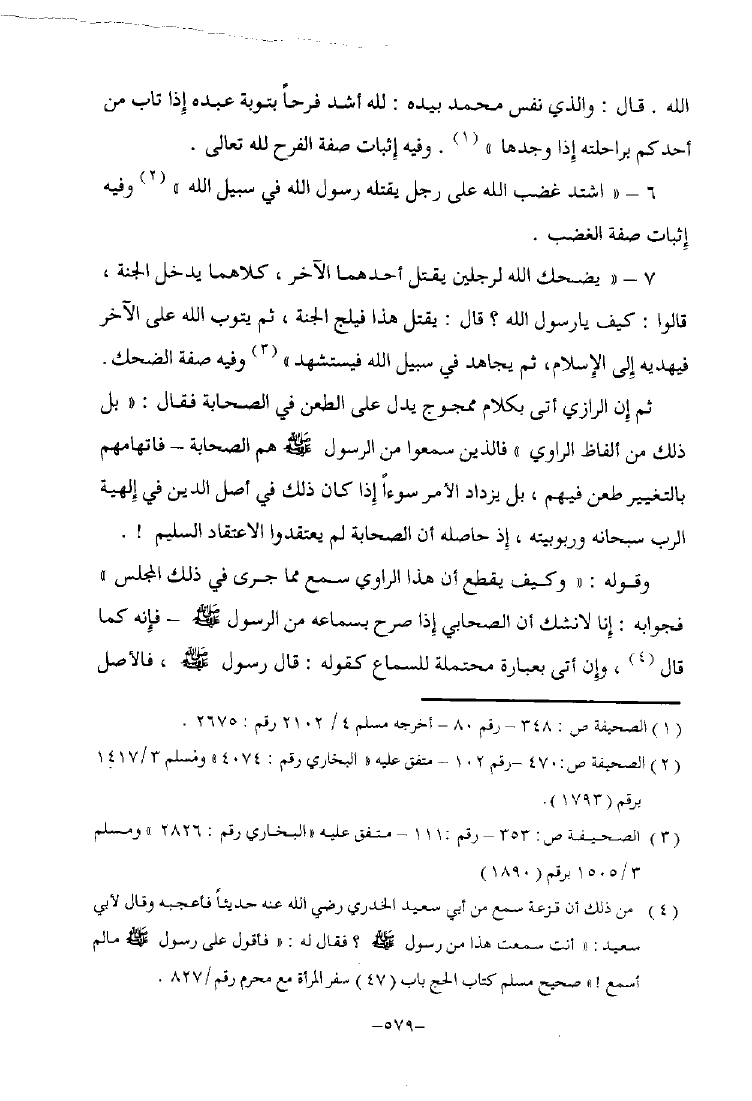 الله . قال : والذي نفس محمد بيده : لله أشد فرحاً بتوبة عبده إذا تاب من
أحدكم براحلته إذا وجدها » (١) . وفيه إثبات صفة الفرح لله تعالى .
٦ – « اشتد غضب الله على رجل يقتله رسول الله في سبيل الله » (٢) وفيه
إثبات صفة الغضب .
٧ – « يضحك الله لرجلين يقتل أحدهما الآخر ، كلاهما يدخل الجنة ،
قالوا : كيف يارسول الله ؟ قال : يقتل هذا فيلج الجنة ، ثم يتوب الله على الآخر
فيهديه إلى الإسلام، ثم يجاهد في سبيل الله فيستشهد » (٣) وفيه صفة الضحك .
ثم إن الرازي أتى بكلام ممجوج يدل على الطعن في الصحابة فقال : « بل
ذلك من ألفاظ الراوي » فالذين سمعوا من الرسول ﷺ هم الصحابة – فاتهامهم
بالتغيير طعن فيهم ، بل يزداد الأمر سوءاً إذا كان ذلك في أصل الدين في إلهية
الرب سبحانه وربوبيته ، إذ حاصله أن الصحابة لم يعتقدوا الاعتقاد السليم ! .
وقوله : « وكيف يقطع أن هذا الراوي سمع مما جرى في ذلك المجلس »
فجوابه : إنا لانشك أن الصحابي إذا صرح بسماعه من الرسول ﷺ – فإنه كما
قال (٤) ، وإن أتى بعبارة محتملة للسماع كقوله : قال رسول ﷺ ، فالأصل
(١) الصحيفة ص : ٣٤٨ – رقم ٨٠ – أخرجه مسلم ٤/ ٢١٠٢ رقم : ٢٦٧٥ .
(٢) الصحيفة ص: ٤٧٠ –رقم ١٠٢ – متفق عليه « البخاري رقم : ٤٠٧٤ » ومسلم ٣/ ١٤١٧
برقم (١٧٩٣).
(٣) الصحيفة ص : ٣٥٣ – رقم :١١١ – متفق عليه «البخاري رقم : ٢٨٢٦ » ومسلم
٣/ ١٥٠٥ برقم (١٨٩٠)
(٤) من ذلك أن قزعة سمع من أبي سعيد الخدري رضي الله عنه حديثاً فأعجبه وقال لأبي
سعيد : « أنت سمعت هذا من رسول ﷺ ؟ فقال له : « فأقول على رسول ﷺ مالم
أسمع ! » صحيح مسلم كتاب الحج باب (٤٧) سفر المرأة مع محرم رقم/ ٨٢٧ .
–٥٧٩–